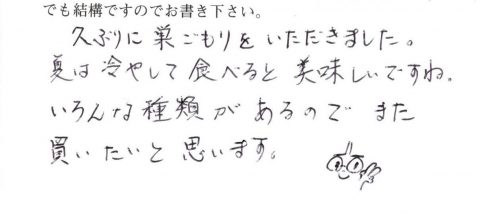 でも結構ですのでお書き下さい。
久ぶりに巣ごもりをいただきました。
夏は冷やして食べると美味しいですね。
いろんな種類があるのでまた
買いたいと思います。